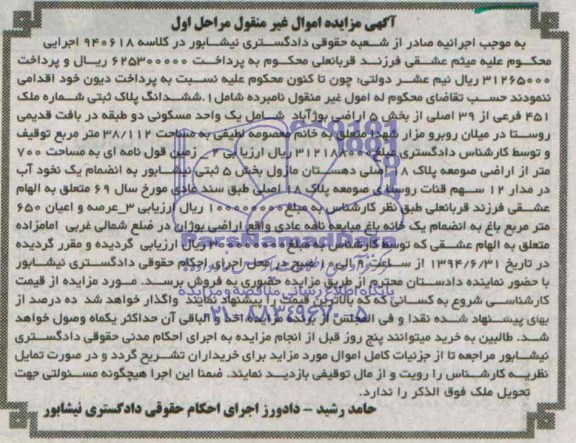 آگهی مزایده اموال غیر منقول مراحل اول
به موجب اجرائیه صادر از شعبه حقوقی دادگستری نیشابور در کلاسه ۹۴۰۶۱۸ اجرایی
محکوم علیه میثم عشقی فرزند قربانعلی محکوم به پرداخت ۶۲۵۳۰۰۰۰۰ ریال و پرداخت
۳۱۲۶۵۰۰۰ ریال نیم عشر دولتی: چون تا کنون محکوم علیه نسبت به پرداخت دیون خود اقدامی
ننمودند حسب تقاضای محکوم له اموال غیر منقول نامبرده شامل۱.ششدانگ پلاک ثبتی شماره ملک
۴۵۱ فرعی از ۳۹ اصلی از بخش ۵ اراضی بوژآباد شامل یک واحد مسکونی دو طبقه در بافت قدیمی
روستا در میلان روبرو مزار شهدا متعلق به خانم معصومه لطیفی به مساحت ۳۸/۱۱۲ متر مربع توقیف
و توسط کارشناس دادگستری مبلغ ارزیابی ۲_ زمین قول نامه ای به مساحت ۷۰۰
متر از اراضی صومعه پلاک ۱۸ اصلی دهستان مازول بخش ۵ ثبتی نیشابور به انضمام یک نخود آب
در مدار ۱۲ سهم قنات روستای صومعه پلاک ۱۸ اصلی طبق سند عادی مورخ سال ۶۹ متعلق به الهام
عشقی فرزند قربانعلی طبق نظر کارشناس به مبلغ ریال ارزیابی ۳_عرصه و اعیان ۶۵۰
متر مربع باغ به انضمام یک خانه باغ مبایعه نامه عادی واقع اراضی بوژان در ضلع شمالی غربی امامزاده
متعلق به الهام عشقی که توسط کارشناس به مبلغ ریال ارزیابی گردیده و مقرر گردیده
در تاریخ ۱۳۹۴/۶/۳۱ از ساعت ۹ الی ۱۰ صبح در محل اجرای احکام حقوقی دادگستری نیشابور
با حضور نماینده دادستان محترم از طریق مزایده حضوری به فروش برسد. مورد مزایده از قیمت
کارشناسی شروع به کسانی که که بالاترین قیمت را پیشنهاد نمایند واگذار خواهد شد ده درصد از
بهای پیشنهاد شده نقدا و فی المجلس از برنده مزایده اخذ و الباقی آن حداکثر یکماه وصول خواهد
شد. طالبین به خرید میتوانند پنج روز قبل از انجام مزایده به اجرای احکام مدنی حقوقی دادگستری
نیشابور مراجعه تا از جزئیات کامل اموال مورد مزاید برای خریداران تشریح گردد و در صورت تمایل
نظریه کارشناس را رویت و از مال توقیفی بازدید نمایند. ضمنا این اجرا هیچگونه مسئولتی جهت
تحویل ملک فوق الذکر را ندارد.
حامد رشید - دادورز اجرای احکام حقوقی دادگستری نیشابور
ParsNamadData
پایگاه اطلاع رسانی مناقصه و مزایده
۰۲۱-۸۸۳۴۹۶۷۰-۵